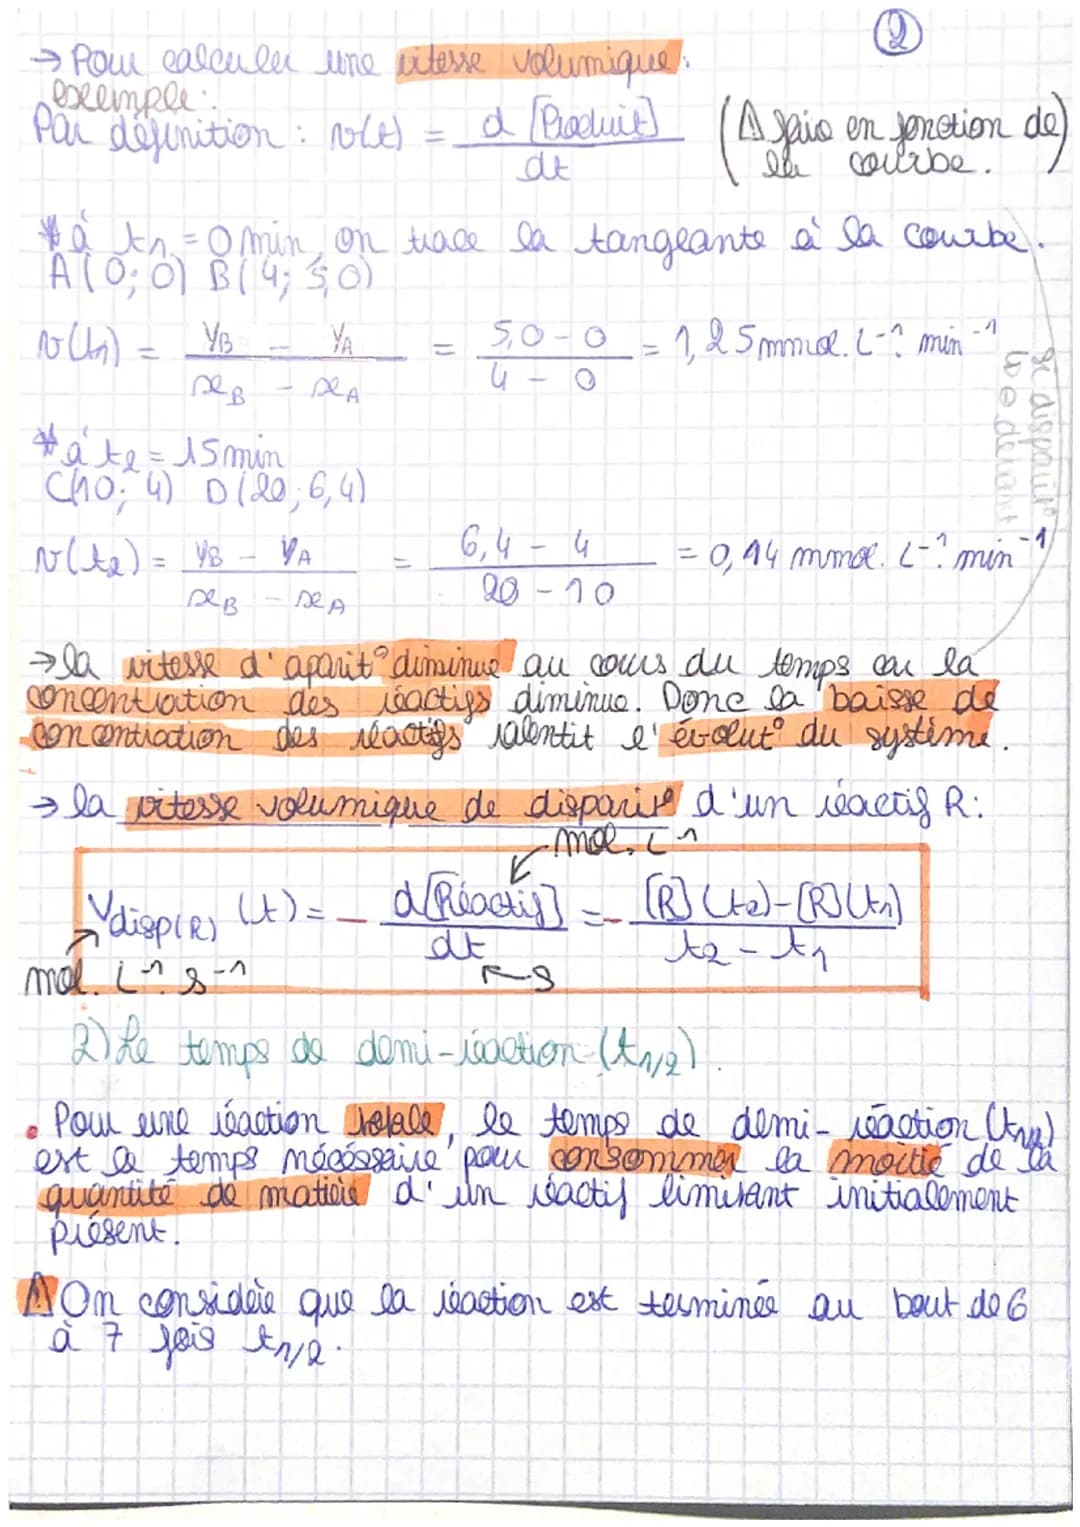 ②
→ Pour calculer une vitesse volumique.
exemple :
Par définition : v(t) = d [Produit] / dt (⚠ faire en fonction de la courbe.)
* à t1 = 0 min, on trace la tangeante à la courbe.
A(0; 0) B(4; 5,0)
v(t1) = yB - yA / xB - xA = 5,0 - 0 / 4 - 0 = 1,25 mmol. L-1 min-1
* à t2 = 15 min
C(10; 4) D(20; 6,4)
v(t2) = yB - yA / xB - xA = 6,4 - 4 / 20 - 10 = 0,14 mmol. L-1 min-1
si disparit°
⊖ devant
→ la vitesse d'aparit° diminue au cours du temps car la
concentration des réactifs diminue. Donc la baisse de
concentration des réactifs ralentit l'évolut° du système.
→ la vitesse volumique de disparit° d'un réactif R :
mol. L-1
Vdisp(R) (t) = - d[Réactif] / dt = - [R](t2)-[R](t1) / t2 - t1
mol. L-1 s-1
s
2) Le temps de demi-réaction (t1/2).
• Pour une réaction totale, le temps de demi-réaction (t1/2)
est le temps nécéssaire pour consommer la moitié de la
quantité de matière d'un réactif limitant initialement
présent.
⚠ On considère que la réaction est terminée au bout de 6
à 7 fois t1/2.